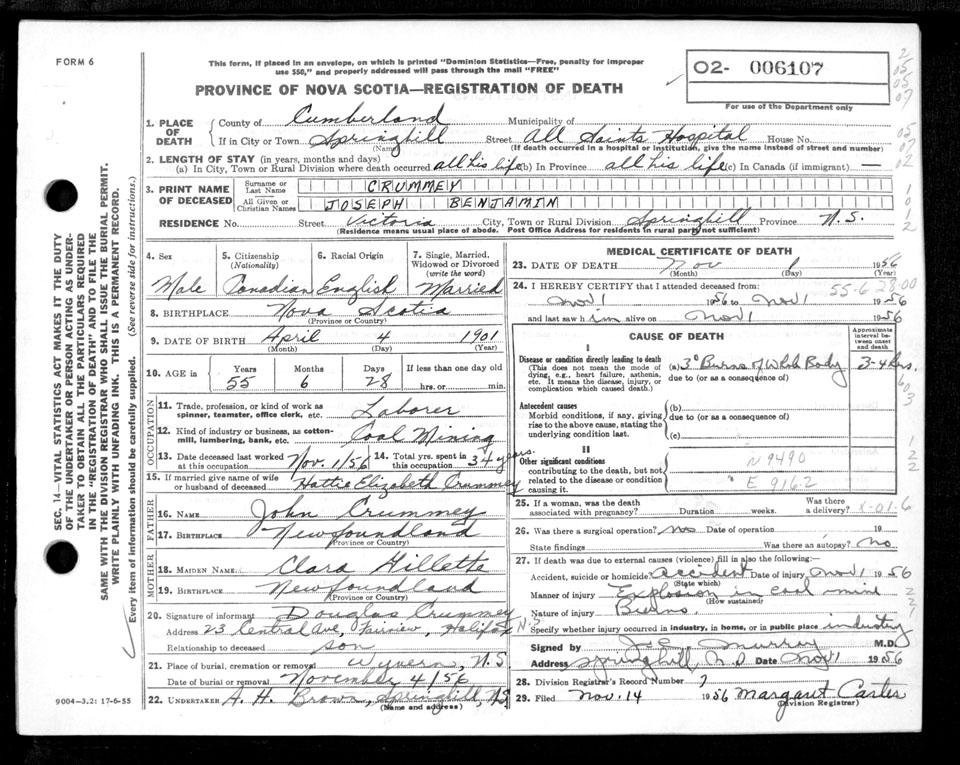 FORM 6
This form, if placed in an envelope, on which is printed "Dominion Statistics—Free, penalty for improper
use $50," and properly addressed will pass through the mail "FREE"
PROVINCE OF NOVA SCOTIA—REGISTRATION OF DEATH
02- 006107
For use of the Department only
1. PLACE OF DEATH
County of Cumberland Municipality of
If in City or Town Springhill Street All Saints Hospital House No.
(Name) (If death occurred in a hospital or institution, give the name instead of street and number)
2. LENGTH OF STAY (in years, months and days)
(a) In City, Town or Rural Division where death occurred all his life (b) In Province all his life (c) In Canada (if immigrant) —
3. PRINT NAME OF DECEASED
Surname or Last Name CRUMMEY
All Given or Christian Names JOSEPH BENJAMIN
RESIDENCE No. Street Victoria City, Town or Rural Division Springhill Province N.S.
(Residence means usual place of abode. Post Office Address for residents in rural party not sufficient)
4. Sex Male
5. Citizenship (Nationality) Canadian
6. Racial Origin English
7. Single, Married, Widowed or Divorced (write the word) Married
8. BIRTHPLACE Nova Scotia
(Province or Country)
9. DATE OF BIRTH April 4 1901
(Month) (Day) (Year)
10. AGE in Years 55 Months 6 Days 28 If less than one day old hrs. or min.
OCCUPATION
11. Trade, profession, or kind of work as spinner, teamster, office clerk, etc. Laborer
12. Kind of industry or business, as cotton-mill, lumbering, bank, etc. Coal Mining
13. Date deceased last worked at this occupation Nov. 1/56 14. Total yrs. spent in this occupation 34 years.
15. If married give name of wife or husband of deceased Hattie Elizabeth Crummey
FATHER
16. NAME John Crummey
17. BIRTHPLACE Newfoundland
(Province or Country)
MOTHER
18. MAIDEN NAME Clara Gillette
19. BIRTHPLACE Newfoundland
(Province or Country)
20. Signature of informant Douglas Crummey
Address 23 Central Ave, Fairview, Halifax N.S.
Relationship to deceased son
21. Place of burial, cremation or removal Wyvern, N.S
Date of burial or removal November 4/56
22. UNDERTAKER A. H. Brown, Springhill, N.S
(Name and address)
MEDICAL CERTIFICATE OF DEATH
23. DATE OF DEATH Nov 1 1956
(Month) (Day) (Year)
24. I HEREBY CERTIFY that I attended deceased from:
Nov 1 1956 to Nov 1 1956
and last saw him alive on Nov 1 1956
55-6 28.00
CAUSE OF DEATH
Approximate interval between onset and death
I
Disease or condition directly leading to death
(This does not mean the mode of dying, e.g., heart failure, asthenia, etc. It means the disease, injury, or complication which caused death.)
(a) 3° Burns of Whole Body 3-4 hrs.
due to (or as a consequence of)
Antecedent causes
Morbid conditions, if any, giving rise to the above cause, stating the underlying condition last.
(b)
due to (or as a consequence of)
(c)
II
Other significant conditions
contributing to the death, but not related to the disease or condition causing it.
N 9490
E 916.2
25. If a woman, was the death associated with pregnancy? Duration weeks. Was there a delivery?
X-01-6
26. Was there a surgical operation? no Date of operation 19
State findings Was there an autopsy? No
27. If death was due to external causes (violence) fill in also the following:
Accident, suicide or homicide accident Date of injury Nov 1 1956
(State which)
Manner of injury Explosion in coal mine
(How sustained)
Nature of injury Burns
Specify whether injury occurred in industry, in home, or in public place industry
Signed by J E Murray M.D.
Address Springhill N.S Date Nov 1 1956
28. Division Registrar's Record Number 7
29. Filed Nov. 14 1956 Margaret Carter
(Division Registrar)
9004-3.2: 17-6-55
SEC. 14—VITAL STATISTICS ACT MAKES IT THE DUTY
OF THE UNDERTAKER OR PERSON ACTING AS UNDER-
TAKER TO OBTAIN ALL THE PARTICULARS REQUIRED
IN THE "REGISTRATION OF DEATH" AND TO FILE THE
SAME WITH THE DIVISION REGISTRAR WHO SHALL ISSUE THE BURIAL PERMIT.
WRITE PLAINLY WITH UNFADING INK. THIS IS A PERMANENT RECORD.
Every item of information should be carefully supplied. (See reverse side for instructions.)